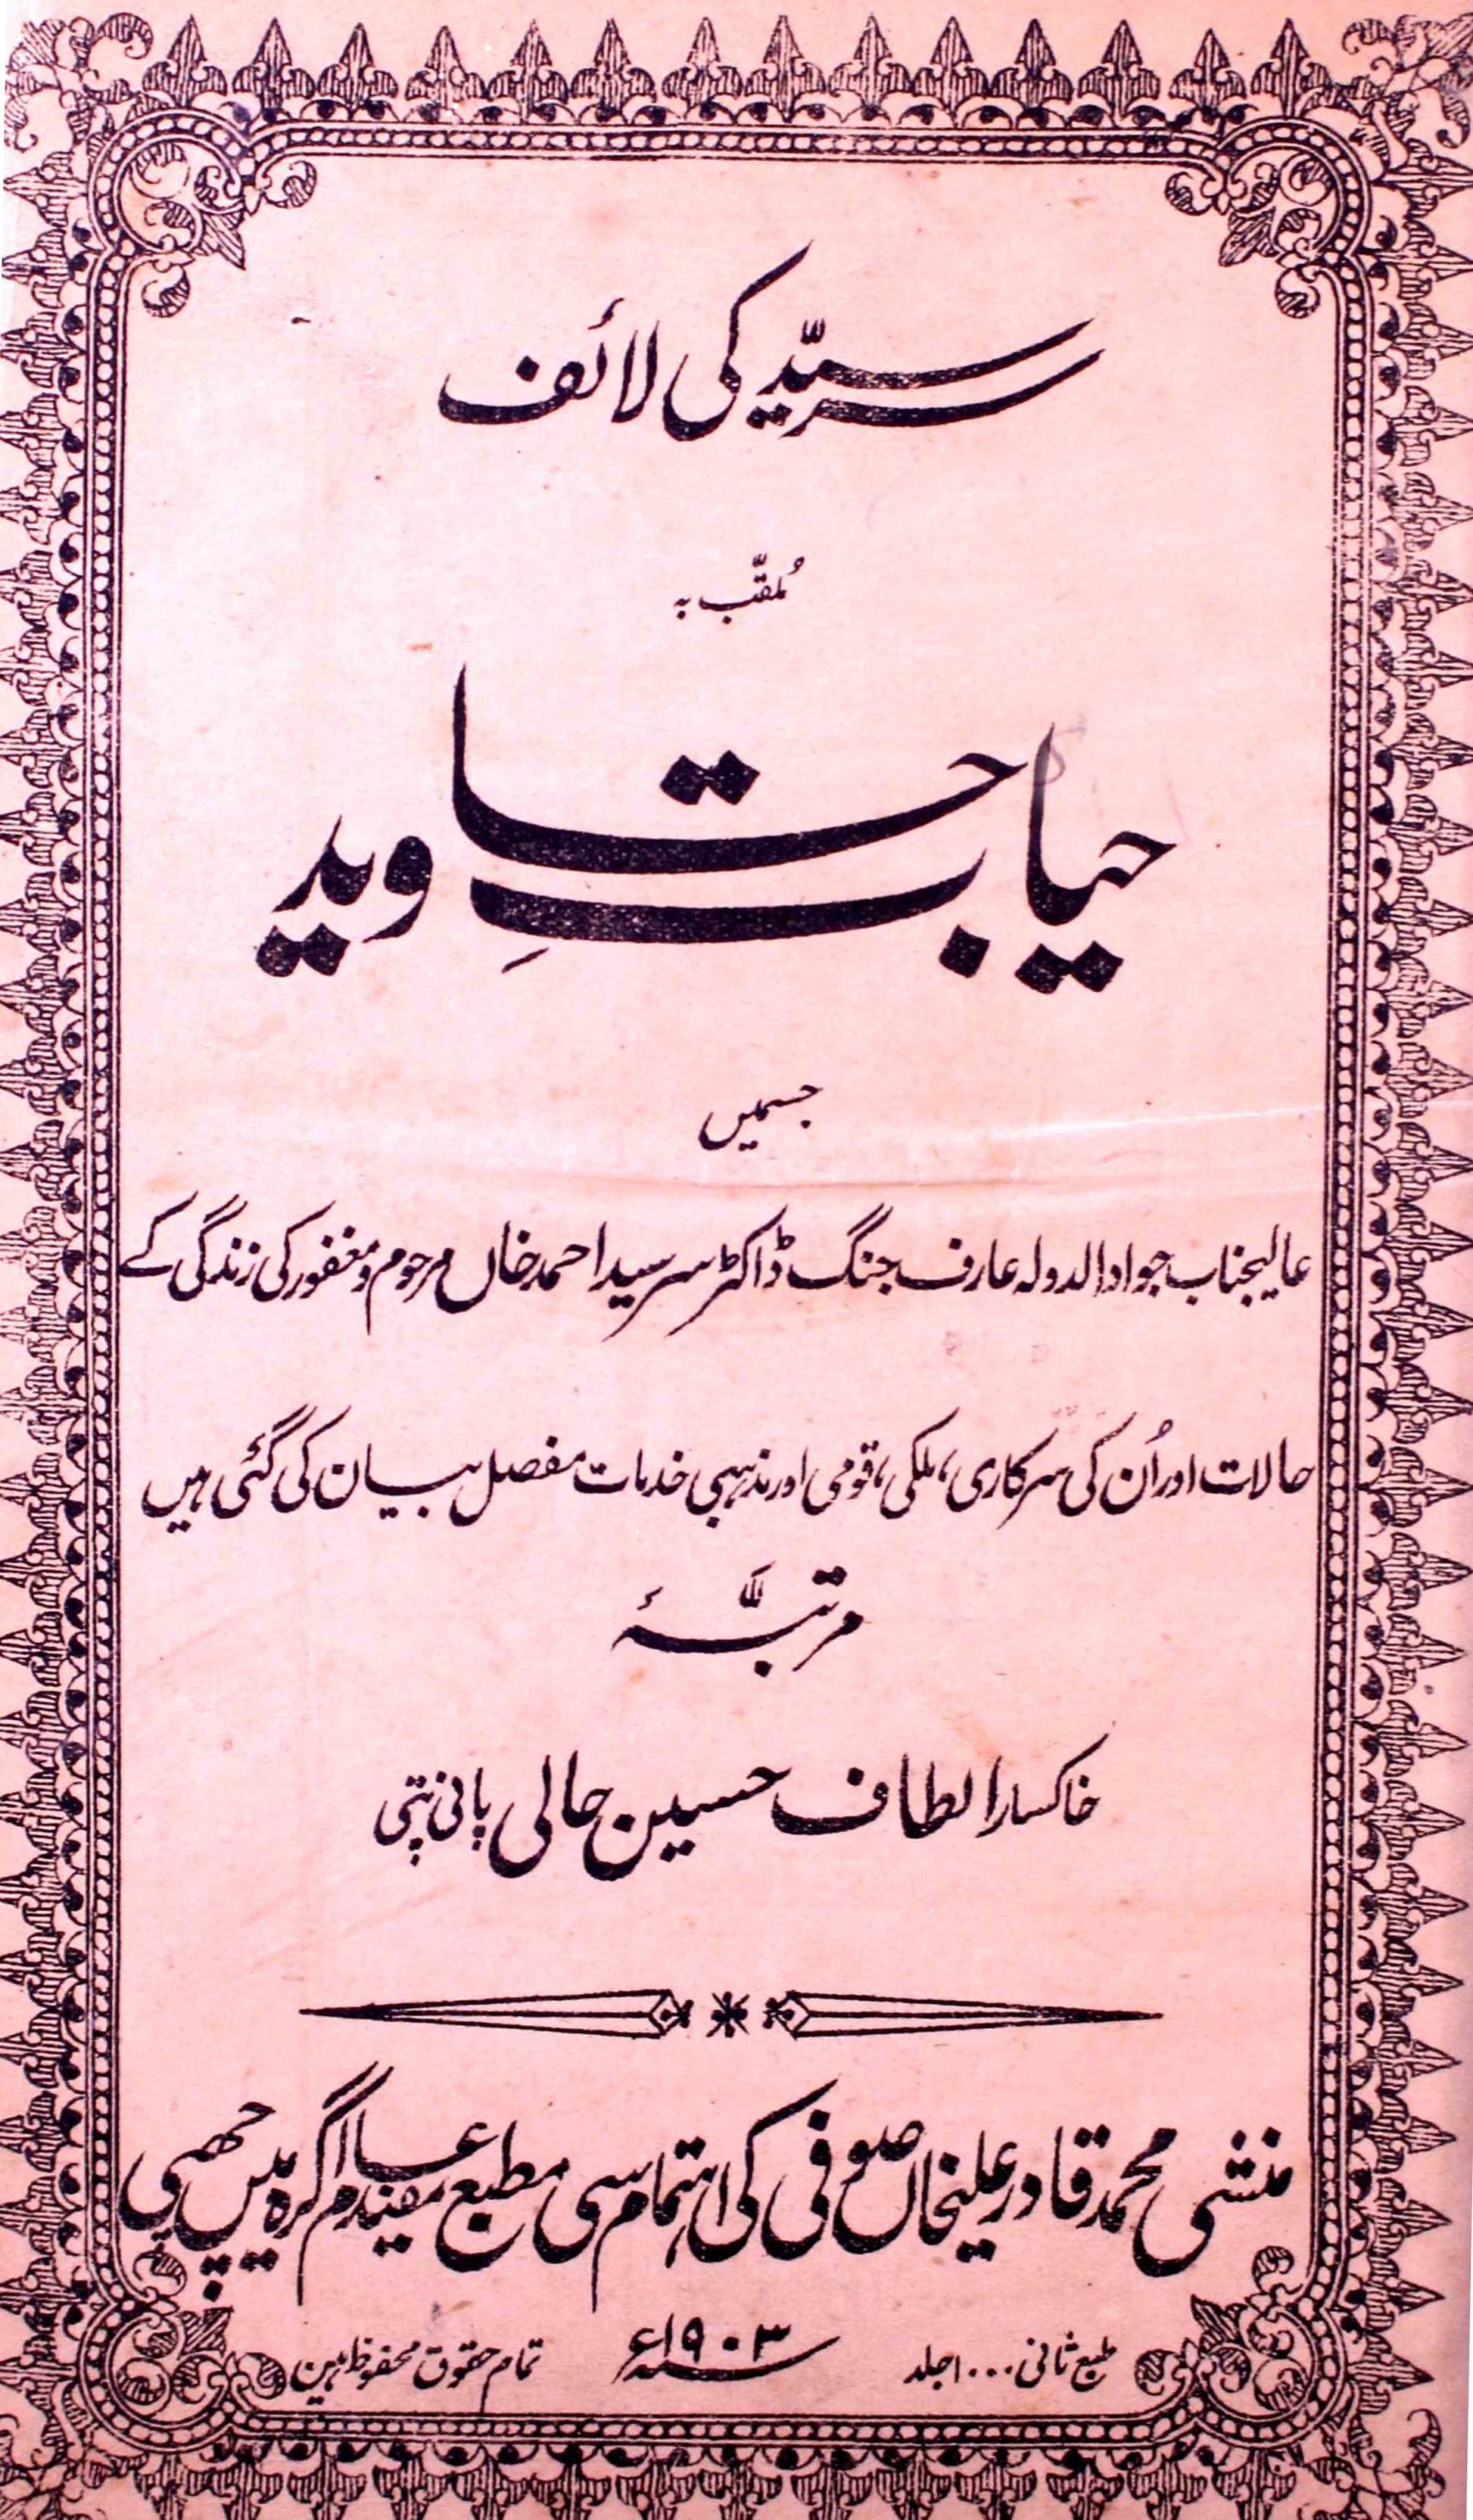 سرسیّد کی لائف
مُلقّب بہ
حیاتِ جاوید
جسمیں
عالیجناب جواد الدولہ عارف جنگ ڈاکٹر سر سید احمد خاں مرحوم و مغفور کی زندگی کے
حالات اور اُن کی سرکاری، ملکی، قومی اور مذہبی خدمات مفصل بیان کی گئی ہیں
مرتبَّۂ
خاکسار الطاف حسین حالی پانی پتی
منشی محمد قادر علیخاں صوفی کی اہتمام سی مطبع مفید عام اگرہ میں چھپی
طبع ثانی ۱۰۰۰ جلد ۱۹۰۳ء تمام حقوق محفوظ ہین